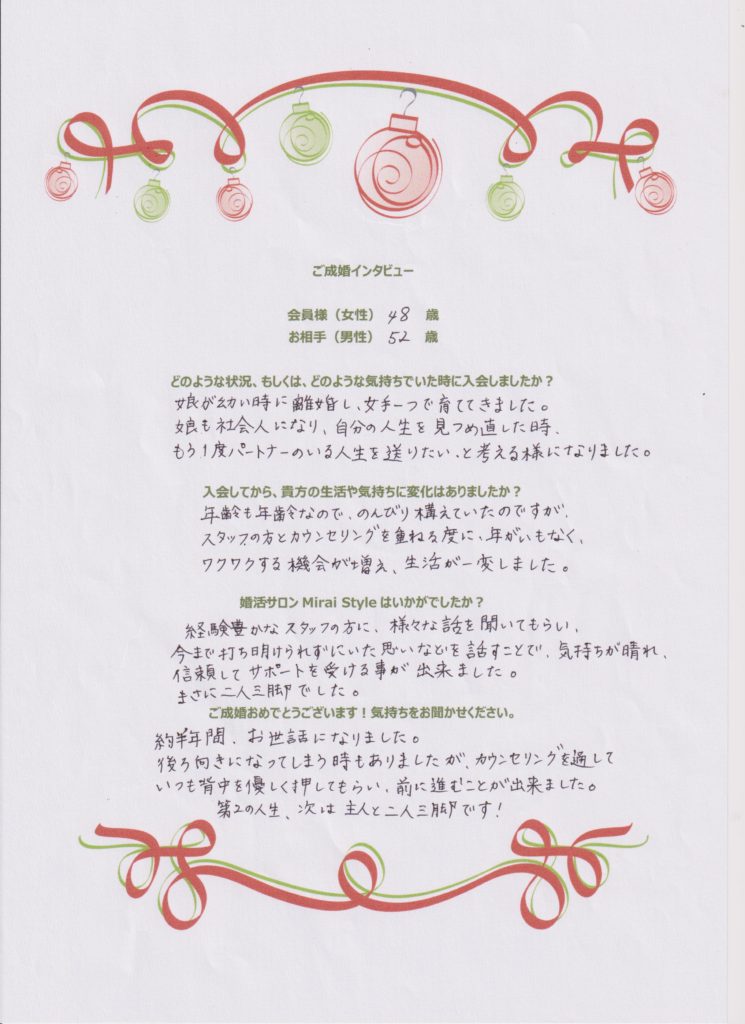 ご成婚インタビュー
会員様（女性） 48 歳
お相手（男性） 52 歳
どのような状況、もしくは、どのような気持ちでいた時に入会しましたか？
娘が幼い時に離婚し、女手一つで育ててきました。
娘も社会人になり、自分の人生を見つめ直した時、
もう1度パートナーのいる人生を送りたい、と考える様になりました。
入会してから、貴方の生活や気持ちに変化はありましたか？
年齢も年齢なので、のんびり構えていたのですが、
スタッフの方とカウンセリングを重ねる度に、年がいもなく、
ワクワクする機会が増え、生活が一変しました。
婚活サロンMirai Styleはいかがでしたか？
経験豊かなスタッフの方に、様々な話を聞いてもらい、
今まで打ち明けられずにいた思いなどを話すことで、気持ちが晴れ、
信頼してサポートを受ける事が出来ました。
まさに二人三脚でした。
ご成婚おめでとうございます！気持ちをお聞かせください。
約半年間、お世話になりました。
後ろ向きになってしまう時もありましたが、カウンセリングを通して
いつも背中を優しく押してもらい、前に進むことが出来ました。
第2の人生、次は主人と二人三脚です！